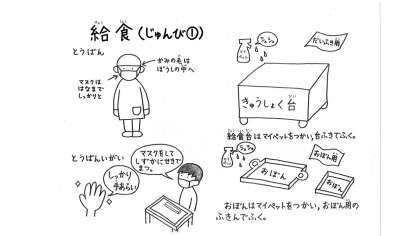 給食(じゅんび①)
とうばん
かみの毛は
ぼうしの中へ
マスクは
はなまで
しっかりと
とうばんいがい
マスクをして
しずかにせきで
まつ。
しっかり
手あらい
シュッシュッ
マイペット
だいふき用
きゅうしょく台
給食台はマイペットをつかい,台ふきでふく。
シュッシュッ
おぼん用
おぼん
おぼん
おぼんはマイペットをつかい,おぼん用の
ふきんでふく。